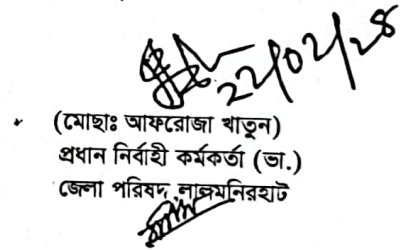 ২২/০২/২৪
(মোছাঃ আফরোজা খাতুন)
প্রধান নির্বাহী কর্মকর্তা (ভা.)
জেলা পরিষদ, লালমনিরহাট